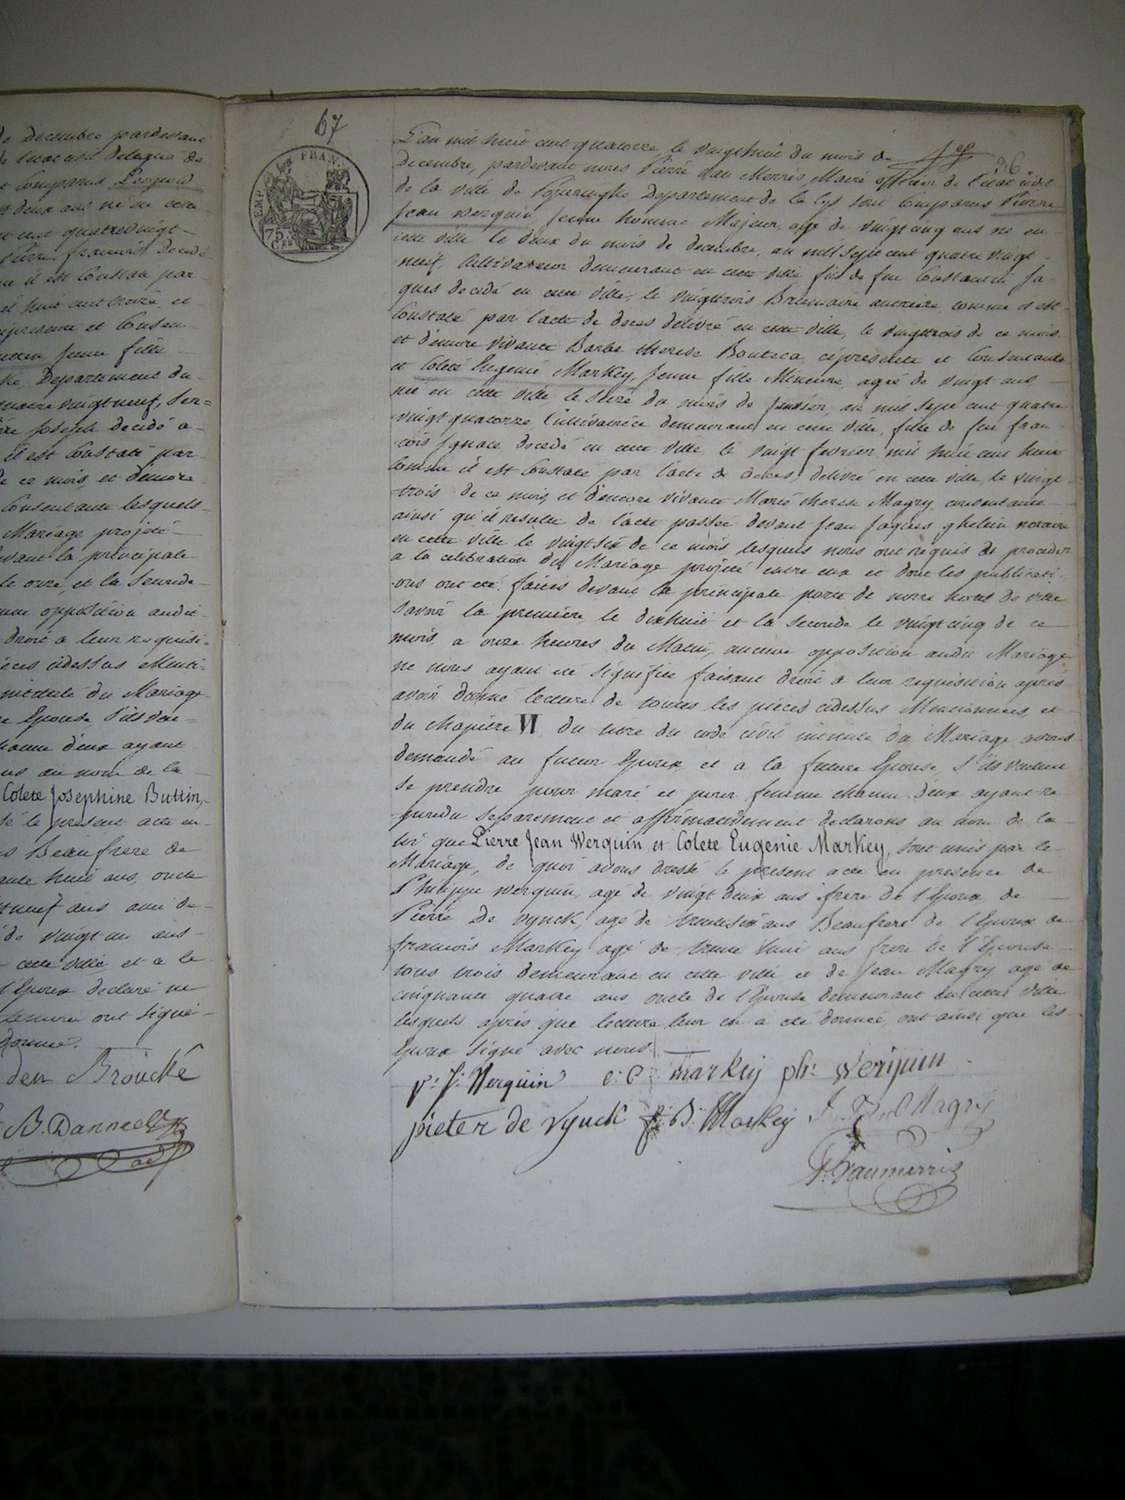 de decembre pardevant
et Comparus Leopold
Pierre francois decedé
Jeune fille
Departement du
quatre vingt neuf,
Joseph decedé a
il est Constaté par
de ce mois, et d'encore
Consentante lesquels
Mariage projeté
devant la principale
le onze, et la seconde
une opposition audit
droit a leur requisi
pièces cidessus Menti
intitulé du Mariage
Epouse s'ils veu
chacun d'eux ayant
au nom de la
Colete Josephine Buttin,
le present acte en
Beaufrere de
huit ans, oncle
neuf ans ami de
de vingt un ans
cette ville et a la
l'Epoux declaré ne
ont signé
donnée.
den Broucké
B. Danneel
67
EMP. FRAN.
75 c.
26
L'an mil huit cent quatorze le vingthuit du mois de
decembre, pardevant nous Pierre Van Morris Maire officier de l'etat civil
de la ville de Departement de la Lys sont Comparus Pierre
Jean Werquin Jeune homme Majeur, agé de vingt cinq ans né en
cette ville le deux du mois de decembre, an mil sept cent quatre vingt
neuf, Cultivateur demeurant en cette ville fils de feu Constantin Ja
ques decedé en cette ville, le vingt trois Brumaire an treize, comme il est
Constaté par l'acte de deces delivré en cette ville, le vingt trois de ce mois
et d'encore vivante Barbe therese Bouteca, cipresente et Consentante
et Colete Eugenie Markey, Jeune fille Mineure, agée de vingt ans
née en cette ville le seize du mois de Janvier, an mil sept cent quatre
vingt quatorze, Cultivatrice demeurant en cette ville, fille de feu fran
cois Ignace decedé en cette ville, le vingt fevrier mil huit cent huit
Comme il est Constaté par l'acte de deces, delivré en cette ville, le vingt
trois de ce mois, et d'encore vivante Marie therese Magry consentante
ainsi qu'il resulte de l'acte passée devant Jean Jaques ghelein notaire
en cette ville le vingt six de ce mois lesquels nous ont requis de proceder
a la celebration du Mariage projeté entre eux et dont les publicati
ons ont eté faites devant la principale porte de notre hotel de ville
savoir la premiere le dixhuit et la seconde le vingt cinq de ce
mois, a onze heures du Matin, aucune opposition audit Mariage
ne nous ayant eté signifiée faisant droit a leur requisition après
avoir donné lecture de toutes les pièces cidessus Mentionnées et
du chapitre VI du titre du code civil intitulé du Mariage avons
demandé au futur Epoux et a la future Epouse, s'ils veulent
se prendre pour mari et pour femme chacun d'eux ayant re
pondu separement et affirmativement declarons au nom de la
loi que Pierre Jean Werquin et Colete Eugenie Markey, sont unis par le
Mariage, de quoi avons dressé le present acte en presence de
Philippe Werquin, agé de vingt deux ans frere de l'Epoux de
Pierre De Vynck, agé de trente six ans Beaufrere de l'Epoux de
francois Markey agé de trente huit ans frere de l'Epouse
tous trois demeurant en cette ville et de Jean Magry agé de
cinquante quatre ans oncle de l'Epouse demeurant en cette ville
lesquels après que lecture leur en a eté donnée, ont ainsi que les
Epoux signé avec nous.
p: J: Werquin e: C: markey ph: Werquin
pieter de Vynck f: B: Markey Magry
P. Vanmorris